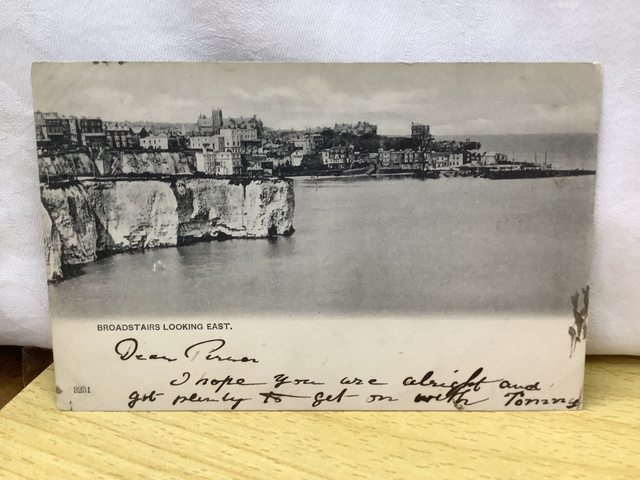 BROADSTAIRS LOOKING EAST.
Dear
I hope you are alright and
got plenty to get on with Tommy